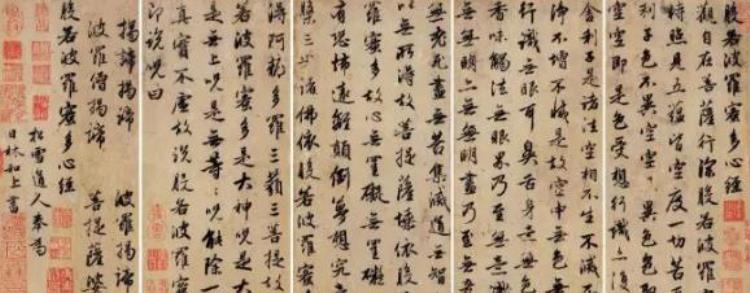 般若波羅蜜多心經
觀自在菩薩行深般若波羅
時照見五蘊皆空度一切苦
利子色不異空空不異色色即
空空即是色受想行識亦復
舍利子是諸法空相不生不滅不
淨不增不減是故空中無色
行識無眼耳鼻舌身意無色
香味觸法無眼界乃至無意識
無無明亦無無明盡乃至無老
無老死盡無苦集滅道無智
以無所得故菩提薩埵依般
羅蜜多故心無罣礙無罣礙
有恐怖遠離顛倒夢想究
槃三世諸佛依般若波羅蜜多
得阿耨多羅三藐三菩提故
若波羅蜜多是大神咒是大
是無上咒是無等等咒能除一
真實不虛故說般若波羅蜜
即說咒曰
揭諦揭諦 波羅揭諦
波羅僧揭諦 菩提薩婆
般若波羅蜜多心經
松雪道人奉為
日林和上書